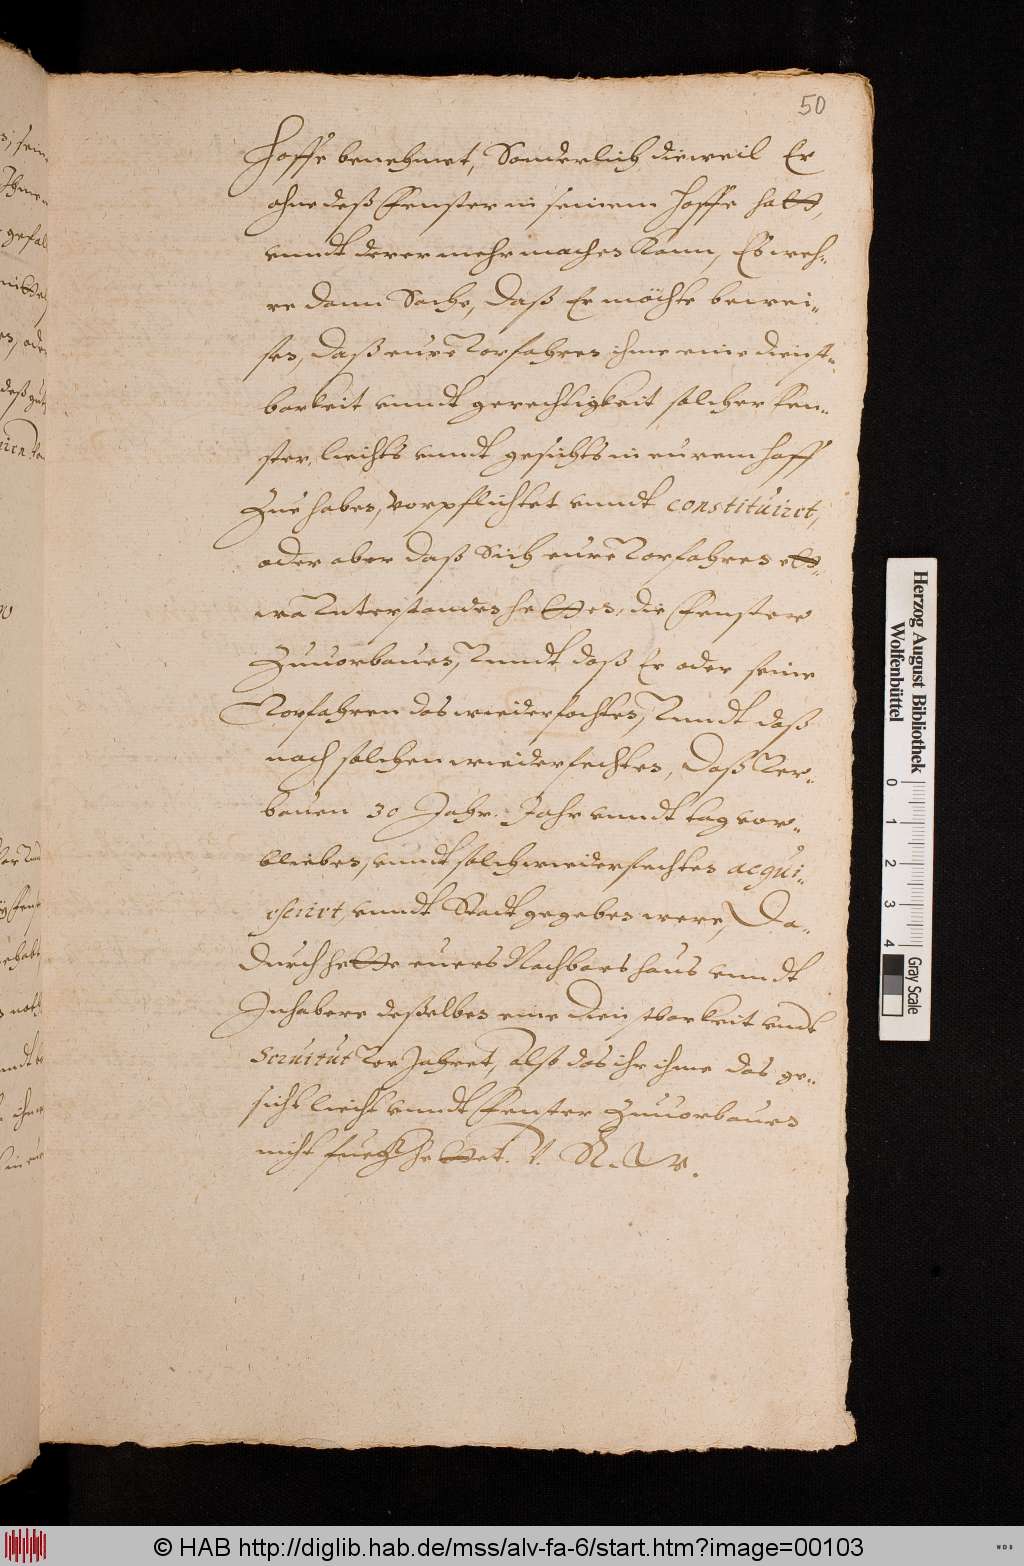 50
Hoffe benehmet, Sonderlich dieweil Er
ohne deß Fenster in seinem Hoffe hatt,
vnndt derer mehr machen kann, Es weh-
re dann Sache, daß Er möchte bewei-
sen, daß eure Vorfahren ihme eine dienst-
barkeit vnndt gerechtigkeit solcher Fen-
ster, liechts vnndt gesichts in eurem Hoff
Zue haben, vorpflichtet vnndt constituiret,
oder aber daß Sich eure Vorfahren ett-
wa Vnterstanden hetten, die Fenster
Zuuorbauen, Vnndt daß Er oder seine
Vorfahren das wiederfochten, Vnndt daß
nach solchen wiederfechten, daß Ver-
bauen 30 Jahr. Jahr vnndt tag vor-
blieben, vnndt solch wiederfechten acqui-
esciret, vnndt Stadt gegeben were, Da-
durch hette eures Nachbars haus vnndt
Inhabere deßelben eine dienstbarkeit vndt
Seruitut Ver Jahret, also das ihr ihme das ge-
sicht liecht vnndt Fenster Zuuorbauen
nicht fueg hettet. V. R. W.
Herzog August Bibliothek
Wolfenbüttel
0 1 2 3 4
Gray Scale
© HAB http://diglib.hab.de/mss/alv-fa-6/start.htm?image=00103